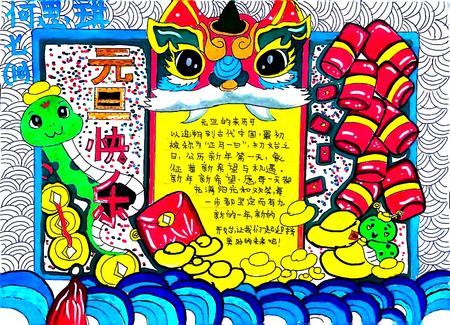 何思琪
七(1)
元旦快乐
元旦的来历可
以追溯到古代中国,最初
被称为“正月一日”,初始之
日,公历新年第一天,象
征着新希望与机遇,
新年新希望,愿每一天都
充满阳光和欢笑,每
一步都坚定而有力
新的一年,新的
开始让我们一起迎接
美好的未来吧!